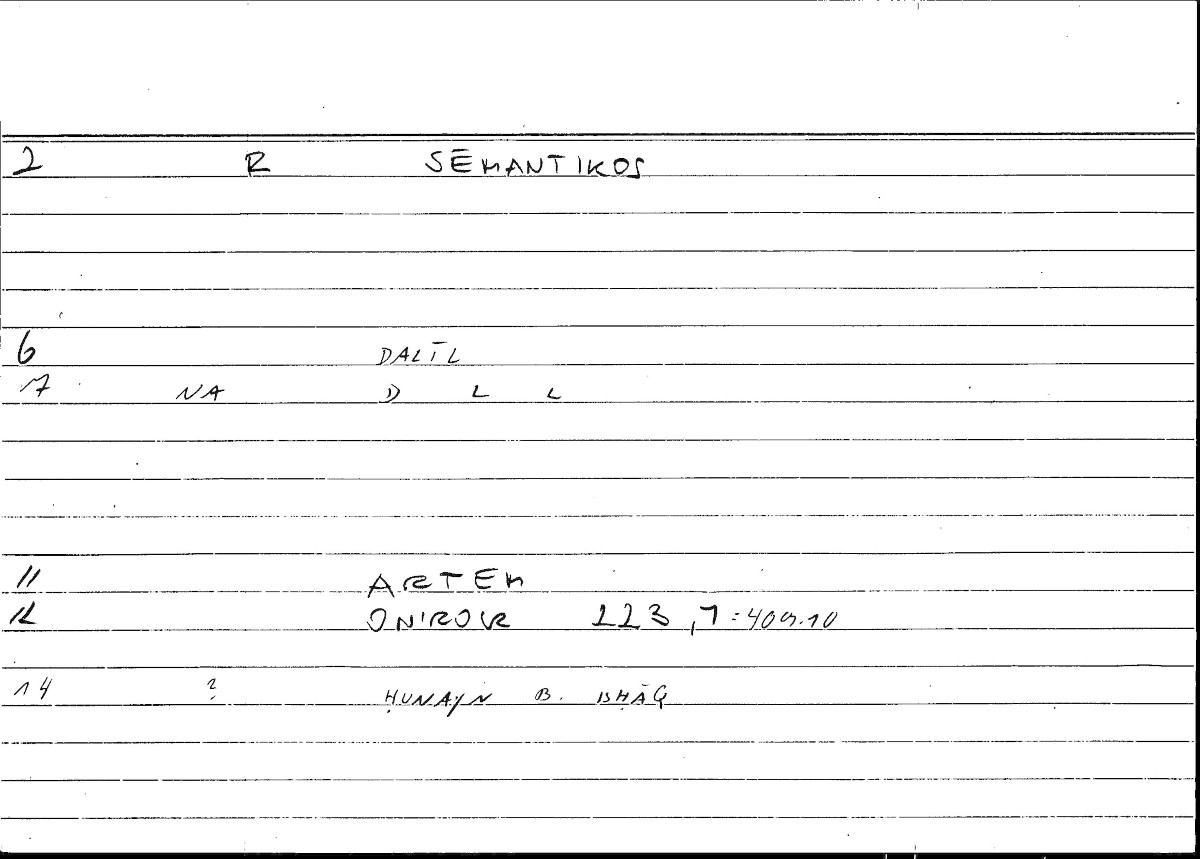 2 R SĒMANTIKOS
6 DALĪL
17 NA D L L
11 ARTEM
12 ONIROKR 223,7:409.10
14 ? ḤUNAYN B. ISḤĀQ